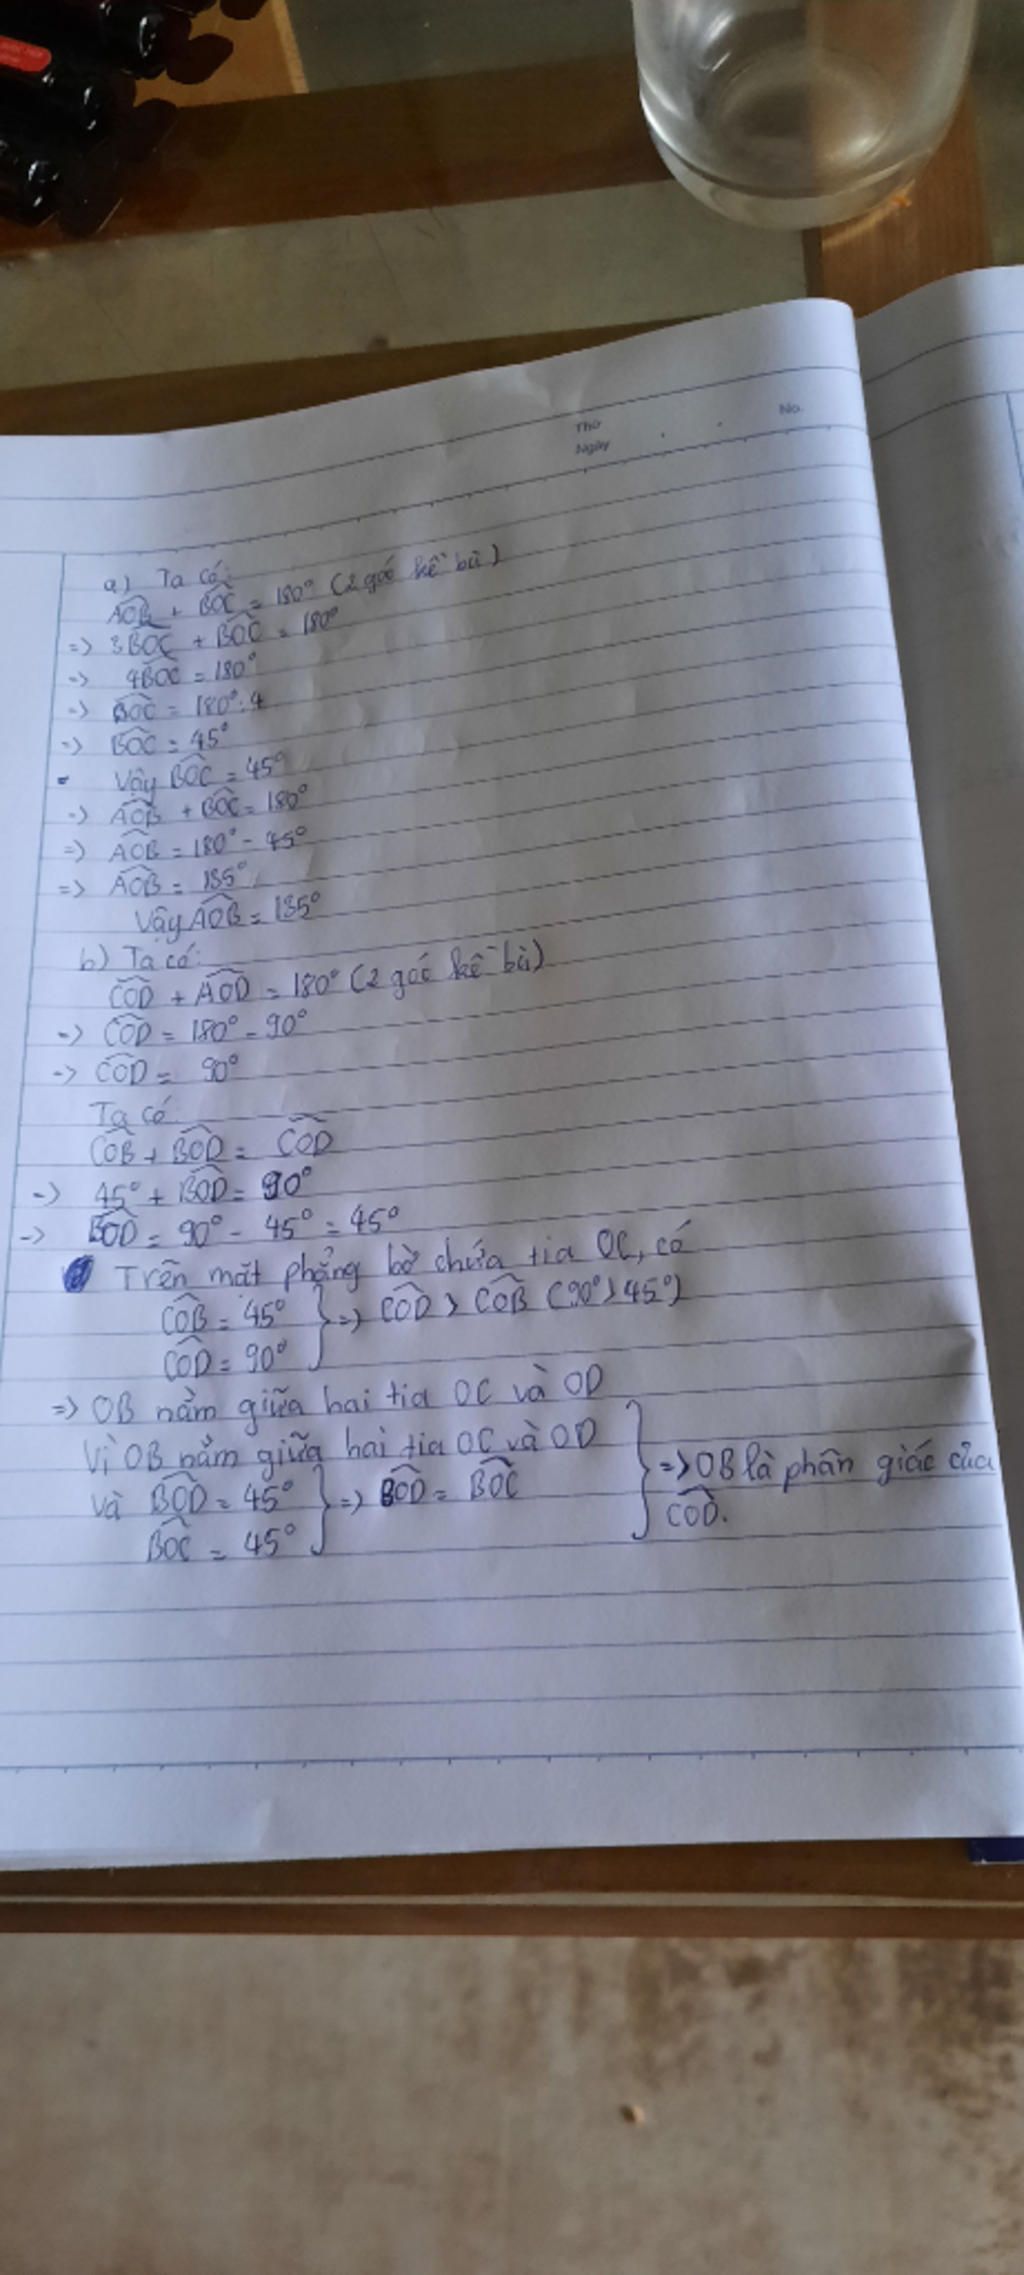 Thứ
Ngày
No.
a) Ta có:
AOB + BOC = 180° (2 góc kề bù)
=> 3BOC + BOC = 180°
=> 4BOC = 180°
=> BOC = 180° : 4
=> BOC = 45°
- Vậy BOC = 45°
=> AOB + BOC = 180°
=> AOB = 180° - 45°
=> AOB = 135°
Vậy AOB = 135°
b) Ta có:
COD + AOD = 180° (2 góc kề bù)
=> COD = 180° - 90°
=> COD = 90°
Ta có:
COB + BOD = COD
=> 45° + BOD = 90°
=> BOD = 90° - 45° = 45°
Trên mặt phẳng bờ chứa tia OC, có
COB = 45°
COD = 90° } => COD > COB (90° > 45°)
=> OB nằm giữa hai tia OC và OD
Vì OB nằm giữa hai tia OC và OD
và BOD = 45°
BOC = 45° } => BOD = BOC
} => OB là phân giác của
COD.